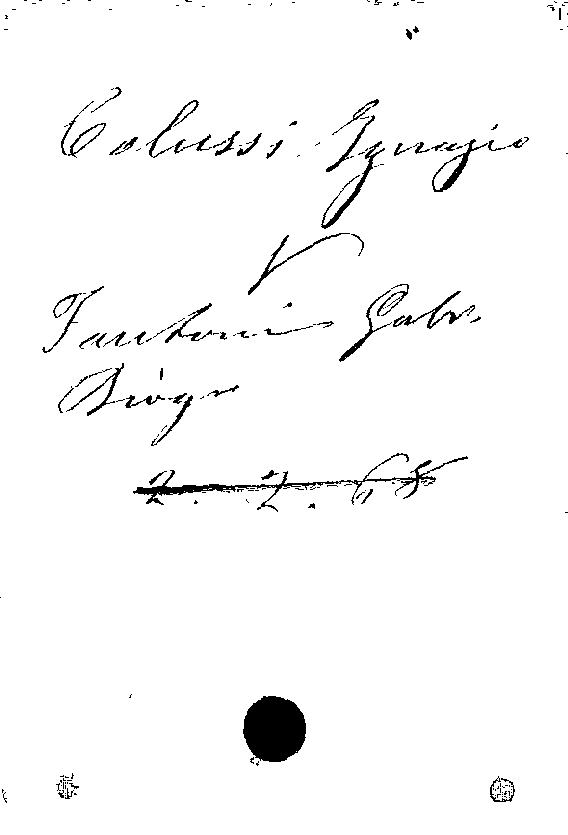 Colussi Ignazio
V
Fantoni Gabr.
Biogr
2. 2. 68